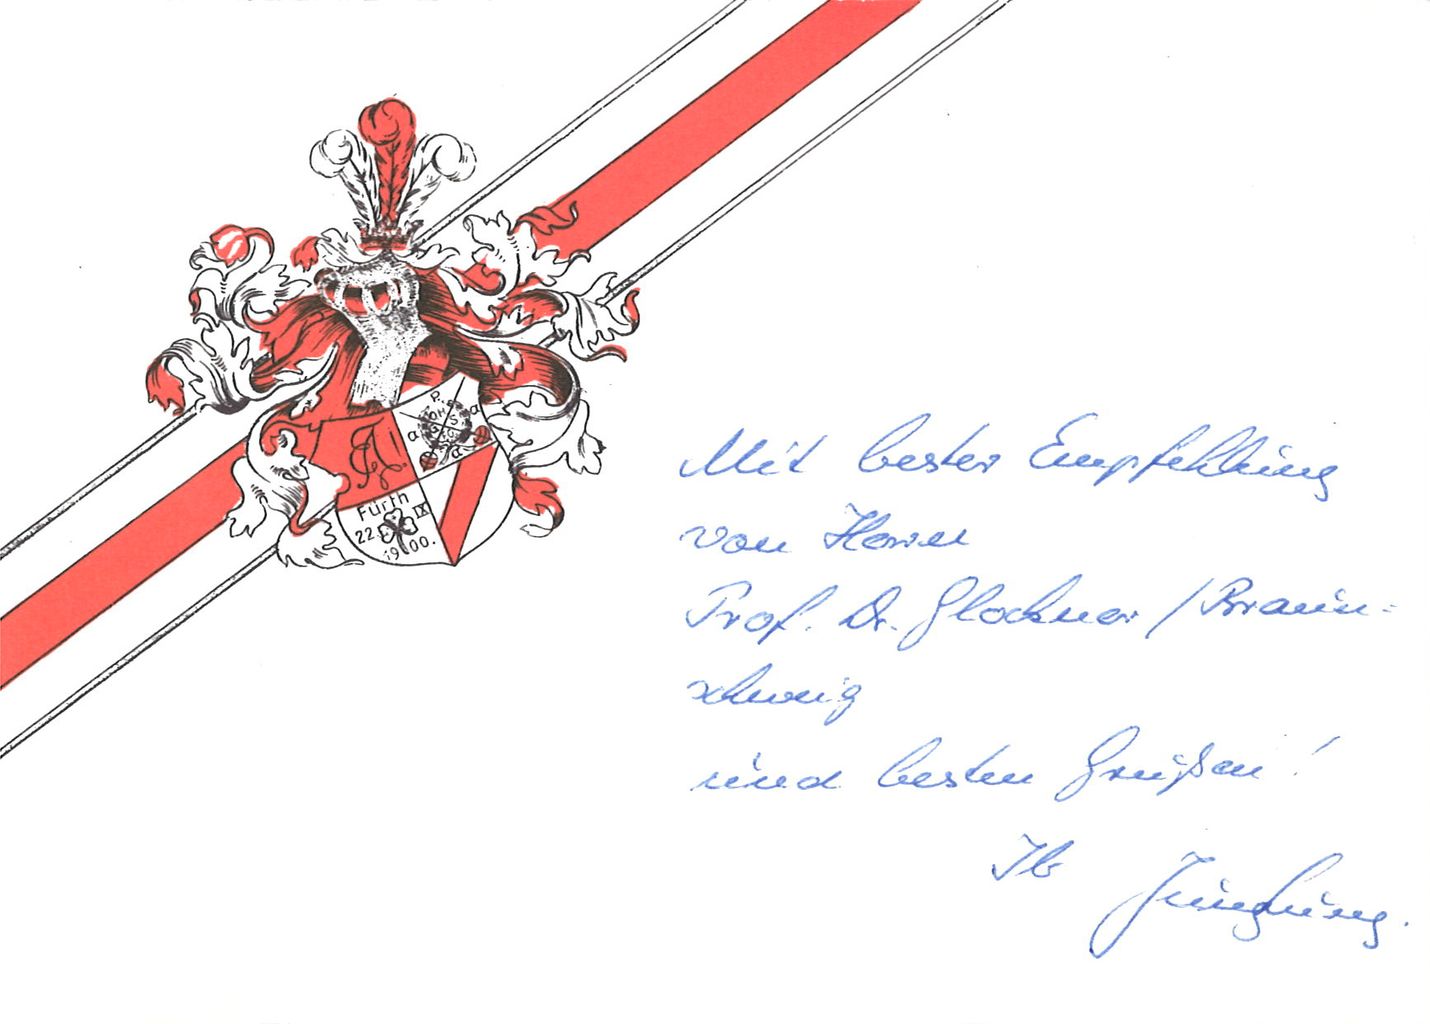 P.
a
a
a
Fürth
22. IX
1900.
Mit bester Empfehlung
von Herrn
Prof. Dr. Glockner / Braun-
schweig
und besten Grüßen!
Ihr